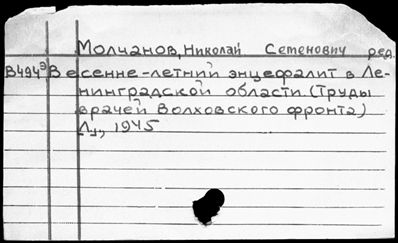 Молчанов, Николай Сетенович ред.
В494э Весенне-летний энцефалит в Ле-
нинградской области. (Труды
врачей Волховского фронта)
Л., 1945